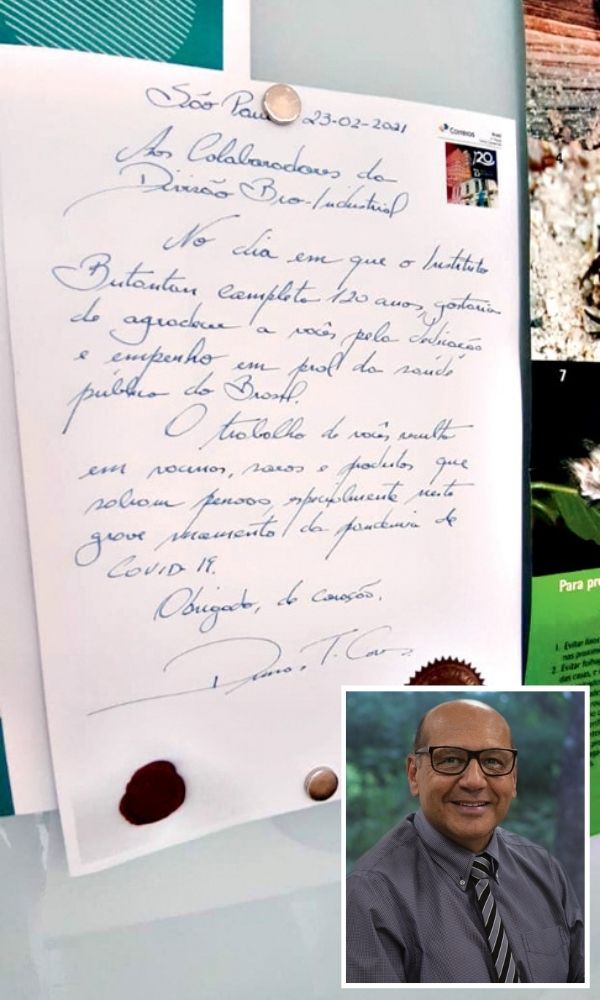 São Paulo 23-02-2021
Correios
120
Aos Colaboradores da
Divisão Bio-Industrial
No dia em que o Instituto
Butantan completa 120 anos, gostaria
de agradecer a vocês pela dedicação
e empenho em prol da saúde
pública do Brasil.
O trabalho de vocês resulta
em vacinas, soros e produtos que
salvam pessoas, especialmente neste
grave momento da pandemia de
COVID 19.
Obrigado, de coração.
Dimas T. Covas
4
7
Para pre
1. Evitar
2. Evitar
das casas, e